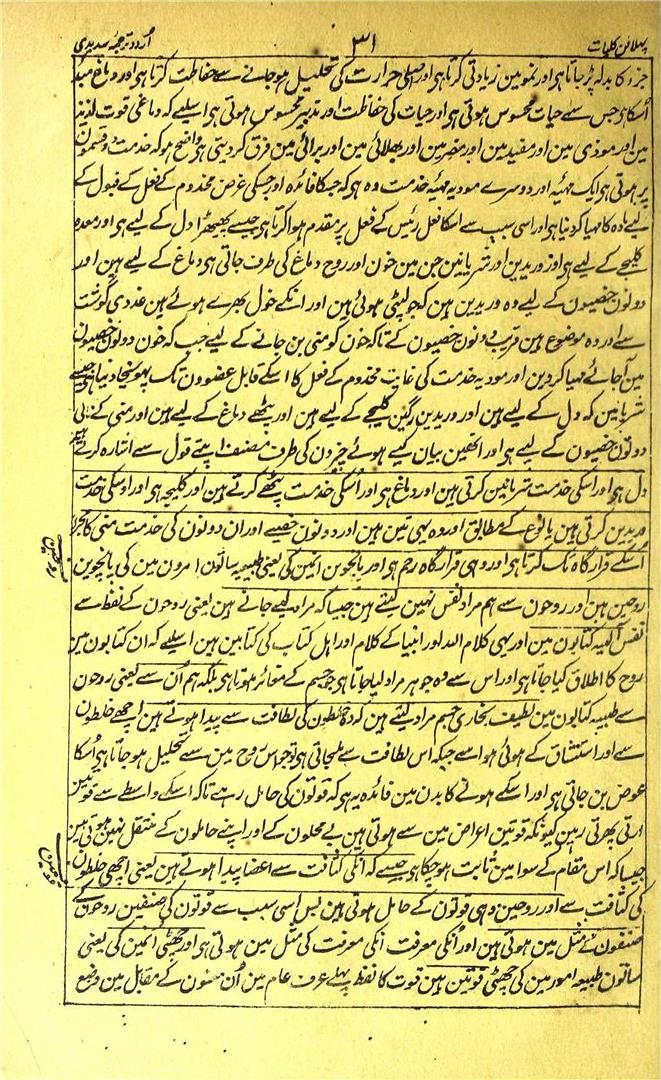 پہلا فن کلیات
۳۱
اُردو ترجمہ سدیدی
جزء کا بدلہ پڑ جاتا ہی اور نمو مین زیادتی کرتا ہی اور اصلی حرارت کی تحلیل ہو جانے سے حفاظت کرتا ہی اور دماغ مبدا
اُسکا ہی جس سے حیات محسوس ہوتی ہی اور حیات کی حفاظت اور تدبیر محسوس ہوتی ہی اسلیے کہ دماغی قوت لذیذ
مین اور موذی مین اور مفید مین اور مضر مین اور بھلائی مین اور برائی مین فرق کر دیتی ہی واضح ہو کہ خدمت دو قسمون
پر ہوتی ہی ایک مہیئہ اور دوسرے مودیہ مہیئہ خدمت وہ ہی کہ جسکا فائدہ اور جسکی غرض مخدوم کے فعل کے قبول کے
لیے مادہ کا مہیا کر دینا ہی اور اسی سبب سے اسکا فعل رئیس کے فعل پر مقدم ہوا کرتا ہی جیسے پھیپھڑا دل کے لیے ہی اور معدہ
کلیجے کے لیے ہی اور وریدین اور شریانین جن مین خون اور روح دماغ کی طرف جاتی ہی دماغ کے لیے ہین اور
دونون خصیون کے لیے وہ وریدین ہین کہ جو لپٹی ہوئی ہین اور انکے خول بھرے ہوئے ہین غددی گوشت
سے اور وہ موضوع ہین قریب دونون خصیون کے تاکہ خون کو منی بن جانے کے لیے جب کہ خون دونون خصیون
مین آجائے مہیا کر دین اور مودیہ خدمت کی غایت مخدوم کے فعل کا اسکے قابل عضوون تک پہونچا دینا ہی جیسے
شریانین کہ دل کے لیے ہین اور وریدین رگین کلیجے کے لیے ہین اور پٹھے دماغ کے لیے ہین اور منی کے نالی
دونون خصیون کے لیے ہی اور انھین بیان کیے ہوئے چیزون کی طرف مصنف اپنے قول سے اشارہ کرتے ہین
دل ہی اور اسکی خدمت شریانین کرتی ہین اور دماغ ہی اور اُسکی خدمت پٹھے کرتے ہین اور کلیجہ ہی اور اوسکی خدمت
وریدین کرتی ہین یا نوع کے مطابق اور وہ یہی تین ہین اور دونون خصیے اور ان دونون کی خدمت منی کا مجرا
اُسکے قرار گاہ تک کرتا ہی اور وہی قرار گاہ رحم ہی اور پانچوین انمین کی یعنی طبیعیہ ساتون امرون مین کی پانچوین
روحین
روحین ہین اور روحون سے ہم مراد نفس نہین لیتے ہین جیسا کہ مراد لیے جاتے ہین یعنی روحون کے لفظ سے
نفس الٰہیہ کتابون مین اور یہی کلام اللہ اور انبیا کے کلام اور اہل کتاب کی کتابین ہین اسلیے کہ ان کتابون مین
روح کا اطلاق کیا جاتا ہی اور اس سے وہ جوہر مراد لیا جاتا ہی جو جسم کے مغائر ہوتا ہی بلکہ ہم اُن سے یعنی روحون
سے طبیہ کتابون مین لطیف بخاری جسم مراد لیتے ہین کہ جو خلطون کی لطافت سے پیدا ہوتے ہین اچھے خلطون
سے اور استنشاق کے ہوئی ہوا سے جبکہ اس لطافت سے ملجاتی ہی تو جو اس روح مین سے تحلیل ہو جاتا ہی اُسکا
عوض بن جاتی ہی اور اسکے ہونے کا بدن مین فائدہ یہ ہی کہ قوتون کی حامل رہے تاکہ اسکے واسطے سے قوتین
ادتی پھرتی رہین کیونکہ قوتین اعراض مین سے ہوتی ہین بے محلون کے اور اپنے حاملون کے منتقل نہین ہوتی ہین
جیسا کہ اس مقام کے سوا مین ثابت ہو چکا ہی جیسے کہ انکی کثافت سے اعضا پیدا ہوتے ہین یعنی اچھی خلطون
کی کثافت سے اور روحین وہی قوتون کے حامل ہوتی ہین بس اِسی سبب سے قوتون کی صنفین روحون کے
صنفون کے مثل مین ہوتی ہین اور اُنکی معرفت انکی معرفت کی مثل مین ہوتی ہی اور چھٹی انمین کی یعنی
قوتین
ساتون طبیعیہ امور مین کی چھٹی قوتین ہین قوت کا لفظ پہلے عرف عام مین اُن معنون کے مقابل مین وضع